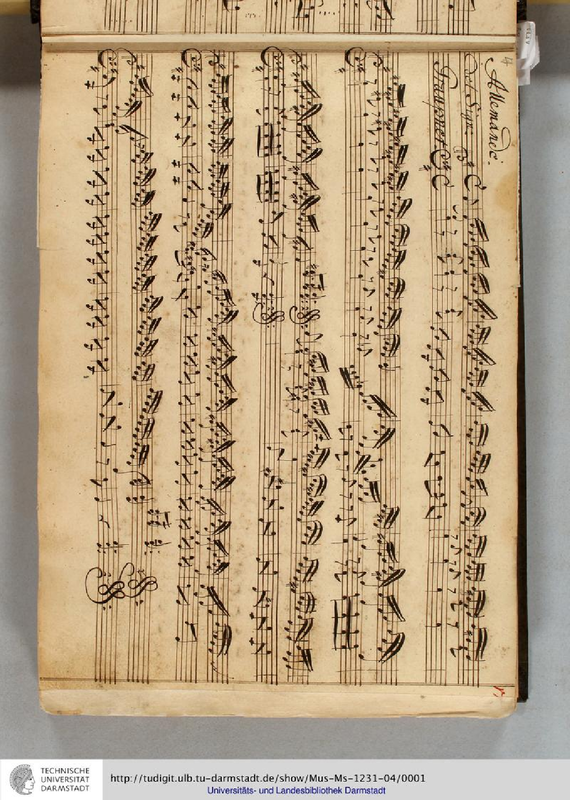 Allemande.
del Sigr
Graupner
TECHNISCHE
UNIVERSITÄT
DARMSTADT
http://tudigit.ulb.tu-darmstadt.de/show/Mus-Ms-1231-04/0001
Universitäts- und Landesbibliothek Darmstadt